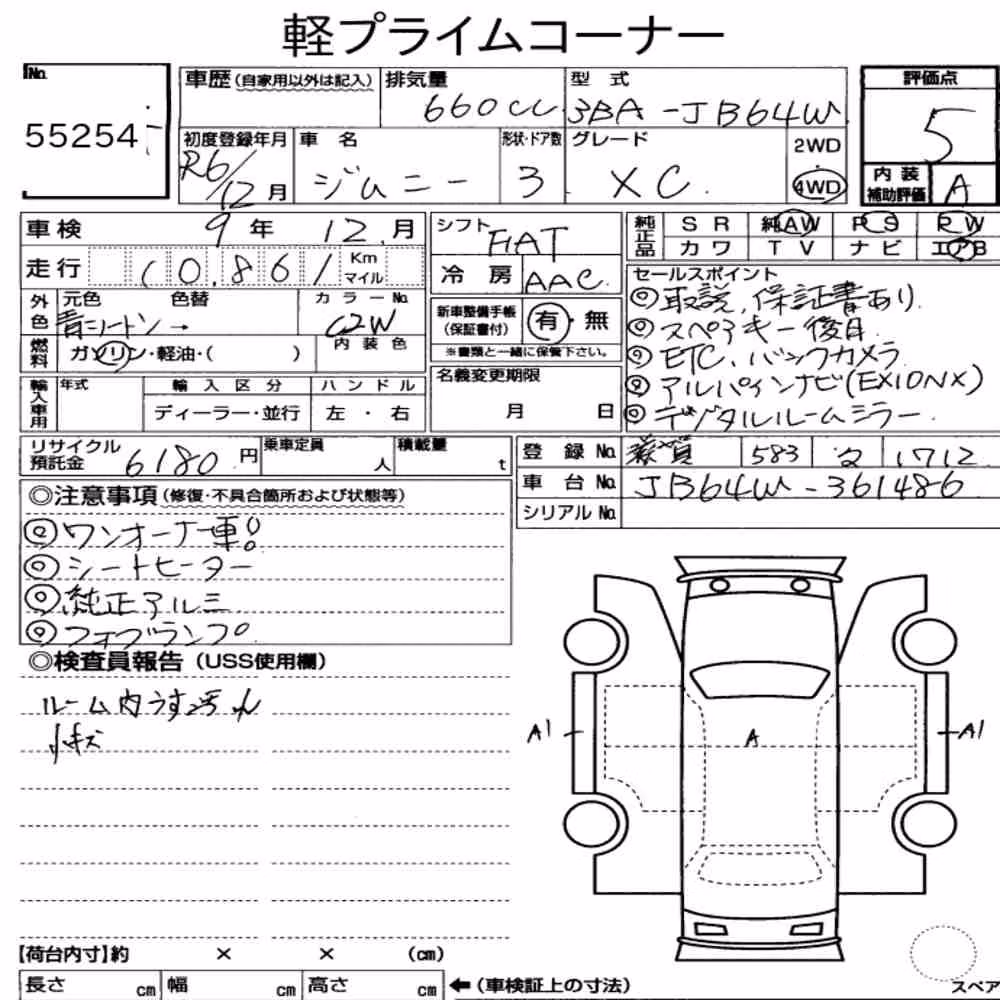 軽プライムコーナー
No. 55254
車歴 (自家用以外は記入)
排気量 660cc
型式 3BA-JB64W
評価点 5
内装補助評価 A
初度登録年月 R6/12月
車名 ジムニー
形状・ドア数 3
グレード XC
2WD
4WD
車検 9年 12月
走行 10,861 Km マイル
シフト FAT
冷房 AAC
純正品 SR 純AW PS PW
カワ TV ナビ エアB
外色 元色 色替 カラーNo.
青ニートン C2W
燃料 ガソリン・軽油・( )
内装色
新車整備手帳(保証書付) 有・無
※書類と一緒に保管下さい。
セールスポイント
◎取説,保証書あり.
◎スペアキー後日.
◎ETC、バックカメラ
◎アルパインナビ(EX10NX)
◎デジタルルームミラー.
輸入車用 年式 輸入区分 ハンドル
ディーラー・並行 左・右
名義変更期限
月 日
リサイクル預託金 6180円
乗車定員 人
積載量 t
登録No. 滋賀 583 1712
車台No. JB64W-361486
シリアルNo.
◎注意事項(修復・不具合箇所および状態等)
◎ワンオーナー車!
◎シートヒーター
◎純正アルミ
◎フォグランプ
◎検査員報告(USS使用欄)
ルーム内うす汚れ
小キズ
A1
A
A1
【荷台内寸】約 × × (cm)
長さ cm 幅 cm 高さ cm ←(車検証上の寸法)
スペア